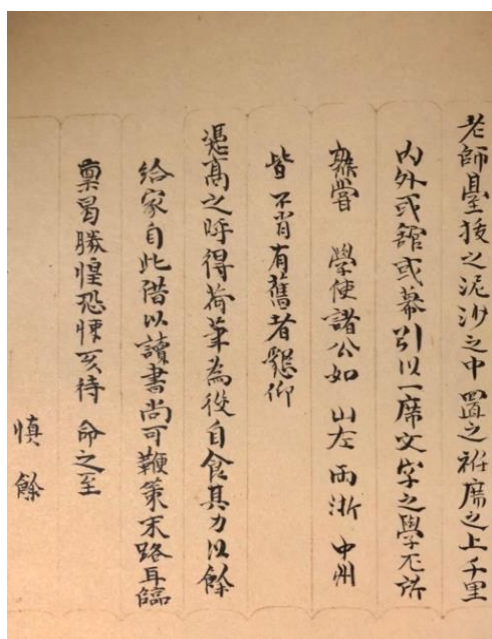 老師臺拔之泥沙之中置之袵席之上千里
內外或館或幕引以一席文字之學不所
棄嘗 學使諸公如 山左 兩浙 中州
皆 不肖有舊者懇仰
憑高之呼得荷筆為役自食其力以餘
給家自此借以讀書尚可鞭策末路耳臨
稟曷勝惶恐悚亥待 命之至
慎 餘